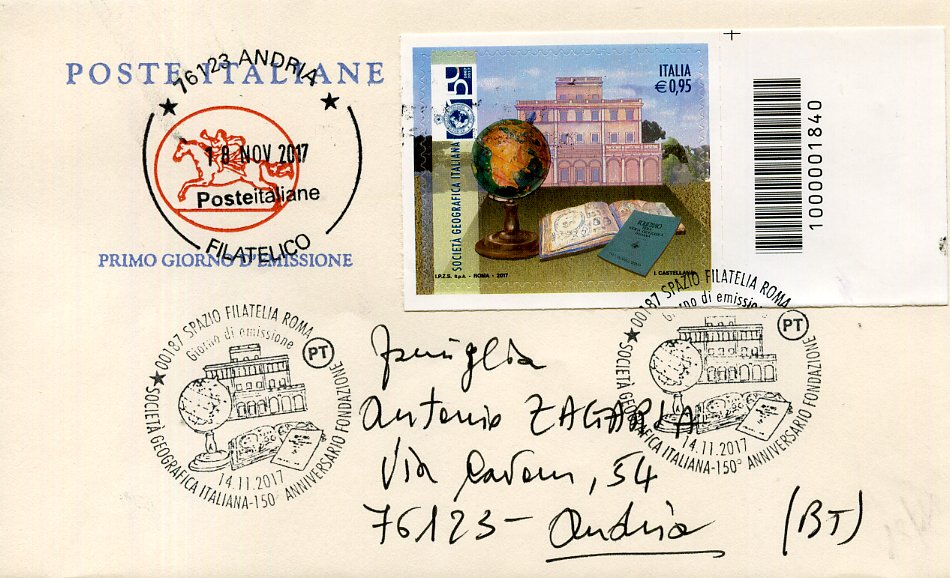 POSTE ITALIANE
76123 ANDRIA
18 NOV 2017
Posteitaliane
FILATELICO
PRIMO GIORNO D'EMISSIONE
ITALIA
€ 0,95
SOCIETÀ GEOGRAFICA ITALIANA
150
I.P.Z.S. S.p.A. - ROMA - 2017
I. CASTELLANA
BOLLETTINO
1000001840
00187 SPAZIO FILATELIA ROMA
Giorno di emissione
PT
14.11.2017
SOCIETÀ GEOGRAFICA ITALIANA-150° ANNIVERSARIO FONDAZIONE
00187 SPAZIO FILATELIA ROMA
Giorno di emissione
PT
14.11.2017
SOCIETÀ GEOGRAFICA ITALIANA-150° ANNIVERSARIO FONDAZIONE
famiglia
Antonio ZAGARIA
Via Cavour, 54
76123 - Andria (BT)